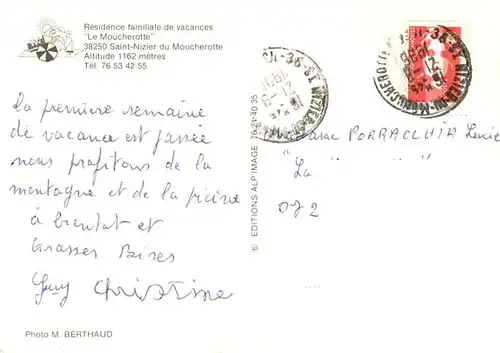 Résidence familiale de vacances
"Le Moucherotte"
38250 Saint-Nizier du Moucherotte
Altitude 1162 mètres
Tél. 76 53 42 55
La première semaine
de vacance est passée
nous profitons de la
montagne et de la picine
à bientot et
Grasses Bises
Guy Christine
Photo M. BERTHAUD
© EDITIONS ALP'IMAGE 76.21.40.35
Madame PORRACCHIA
La
072